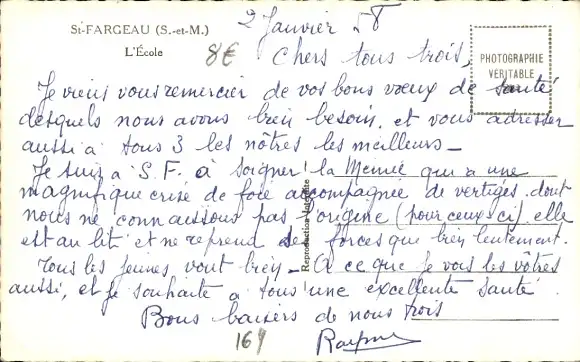 St-FARGEAU (S.-et-M.)
L'École
8€
2 Janvier 58
PHOTOGRAPHIE
VERITABLE
Chers tous trois,
Je viens vous remercier de vos bons vœux de santé
desquels nous avons bien besoin, et vous adresser
aussi à tous 3 les nôtres les meilleurs_
Je suis à S. F. à soigner la Mémée qui a une
magnifique crise de foie accompagnée de vertiges dont
nous ne connaissons pas l'origine (pour ceux-ci) elle
est au lit et ne reprend des forces que bien lentement.
Tous les jeunes vont bien_ A ce que je vois les vôtres
aussi, et je souhaite à tous une excellente santé
Bons baisers de nous trois
Reproduction Interdite
164